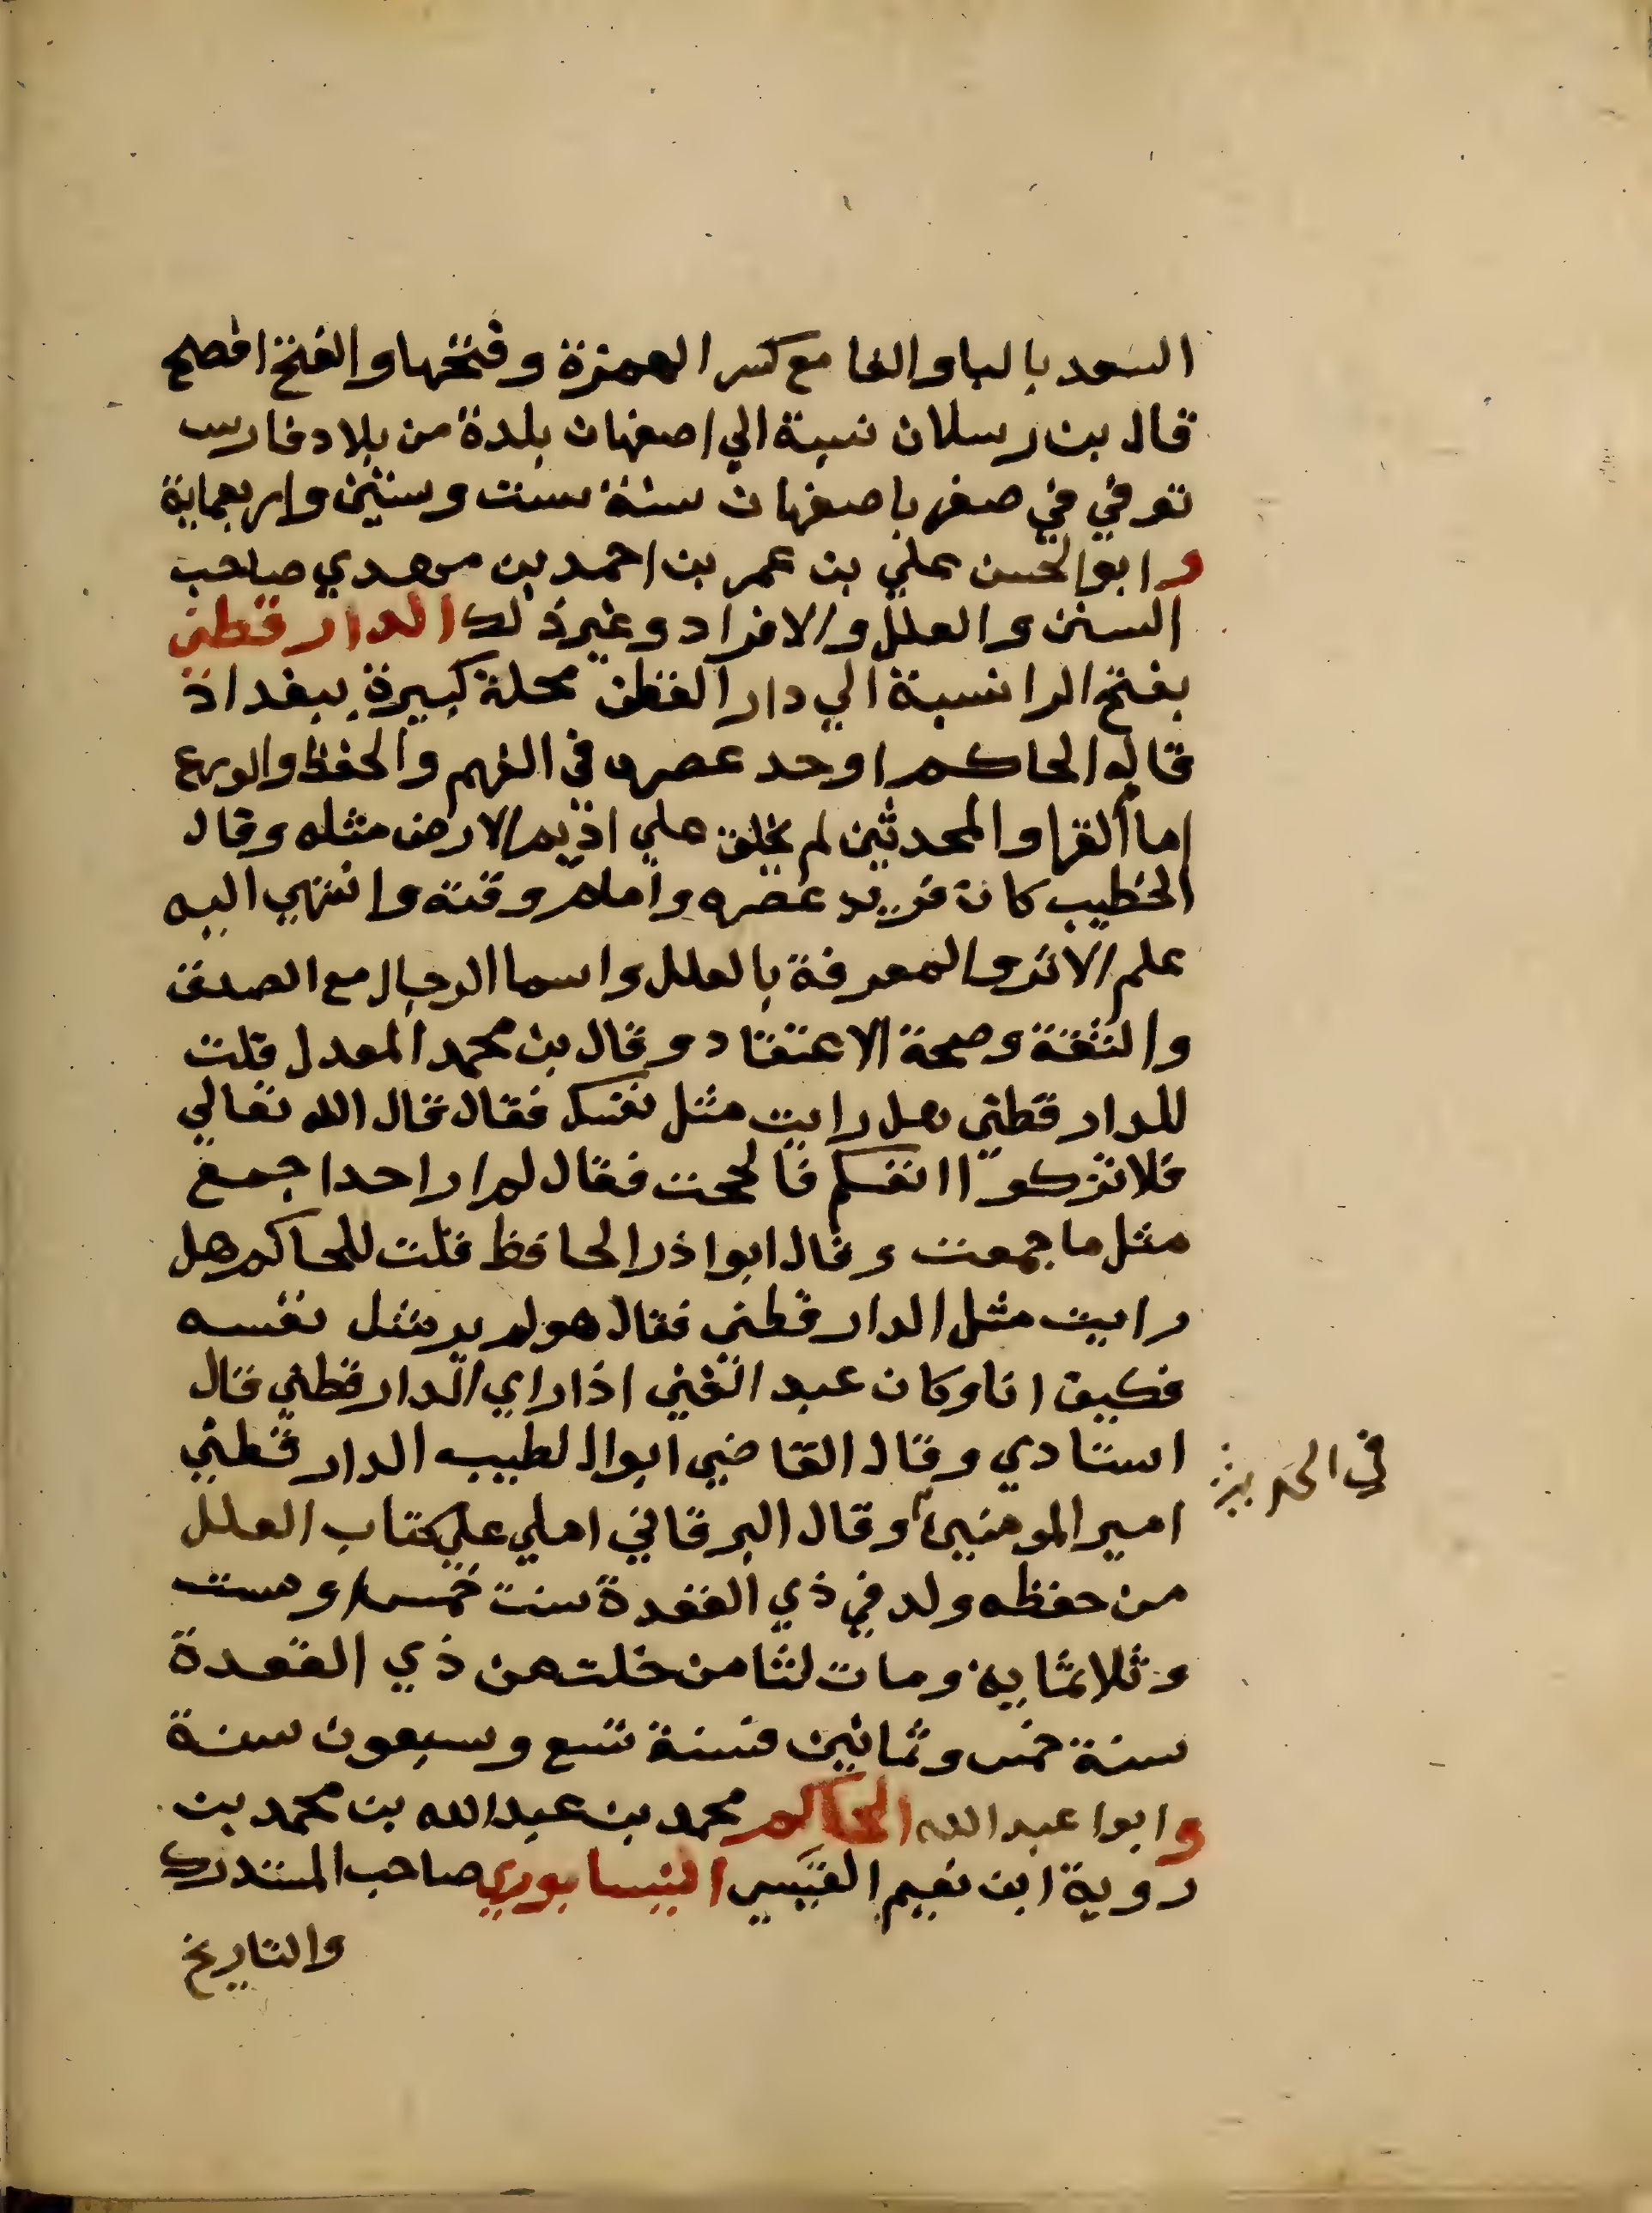 السعد بالبا والفا مع كسر الهمزة وفتحها والفتح افصح
قال بن رسلان نسبة الي اصفهان بلدة من بلاد فارس
توفي في صفر باصفهان سنة ست وستين واربعماية
وابو الحسن علي بن عمر بن احمد بن مهدي صاحب
السنن والعلل والافراد وغير ذلك الدارقطني
بفتح الرا نسبة الي دار القطن محلة كبيرة ببغداد
قال الحاكم اوحد عصره في الفهم والحفظ والورع
امام القرا والمحدثين لم يخلق علي اديم الارض مثله وقال
الخطيب كان فريد عصره وامام وقته وانتهي اليه
علم الاثر والمعرفة بالعلل واسما الرجال مع الصدق
والثقة وصحة الاعتقاد وقال بن محمد المعدل قلت
للدارقطني هل رايت مثل نفسك فقال قال الله تعالي
فلا تزكوا انفسكم فالححت فقال لم ار احدا جمع
مثل ما جمعت وقال ابوا ذر الحافظ قلت للحاكم هل
رايت مثل الدارقطني فقال هو لم ير مثل نفسه
فكيف انا وكان عبد الغني اذا راي الدارقطني قال
استادي وقال القاضي ابوا الطيب الدارقطني
امير المومنين وقال البرقاني املي علي كتاب العلل
في الحديث
من حفظه ولد في ذي القعدة سنت خمس وست
وثلاثماية ومات لثامن خلت من ذي القعدة
سنة خمس وثمانين فسنة تسع وسبعون سنة
وابوا عبد الله الحاكم محمد بن عبد الله بن محمد بن
روية ابن نعيم القيسي النيسابوري صاحب المستدرك
والتاريخ